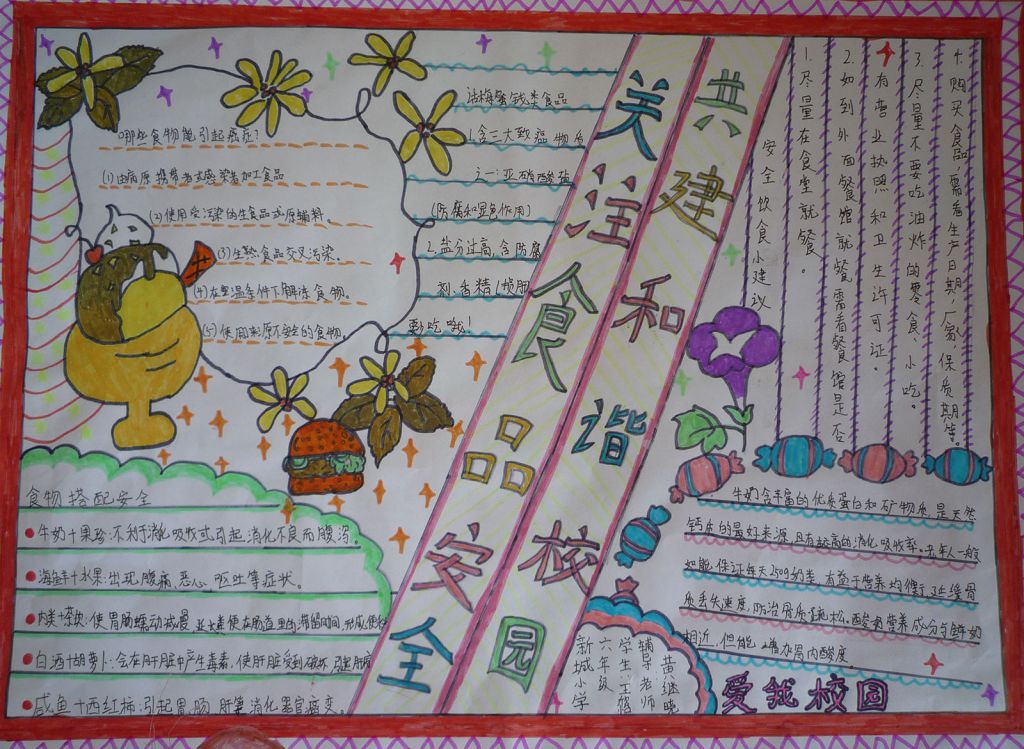 关注食品安全
共建和谐校园
哪些食物能引起癌症?
(1)由病原携带者或感染者加工食品
(2)使用受污染的生食品或原辅料。
(3)生熟食品交叉污染。
(4)在室温条件下解冻食物。
(5)使用来源不安全的食物。
话梅蜜饯类食品
1.含三大致癌物质
之一:亚硝酸盐
(防腐和显色作用)
2.盐分过高,含防腐
剂.香精(损肝
要吃哦!
安全饮食小建议
1.尽量在食堂就餐。
2.如到外面餐馆就餐需看餐馆是否
有营业执照和卫生许可证。
3.尽量不要吃油炸的零食、小吃。
4.购买食品需看生产日期,厂家,保质期等。
食物搭配安全
牛奶+果珍:不利于消化吸收或引起消化不良而腹泻。
海鲜+水果:出现腹痛、恶心、呕吐等症状。
肉类+茶饮:使胃肠蠕动减慢,延长粪便在肠道里的滞留时间,形成便秘
白酒+胡萝卜:会在肝脏中产生毒素,使肝脏受到破坏
咸鱼+西红柿:引起胃、肠、肝等消化器官癌变。
牛奶含丰富的优质蛋白和矿物质,是天然
钙质的最好来源,且有较高的消化吸收率。老年人一般
如能保证每天250g奶类,有益于营养均衡,延缓骨
质丢失速度,防治骨质疏松。酸奶营养成分与鲜奶
相近,但能增加胃内酸度
新城小学
六年级
学生:王
辅导老师
黄继晓
爱我校园